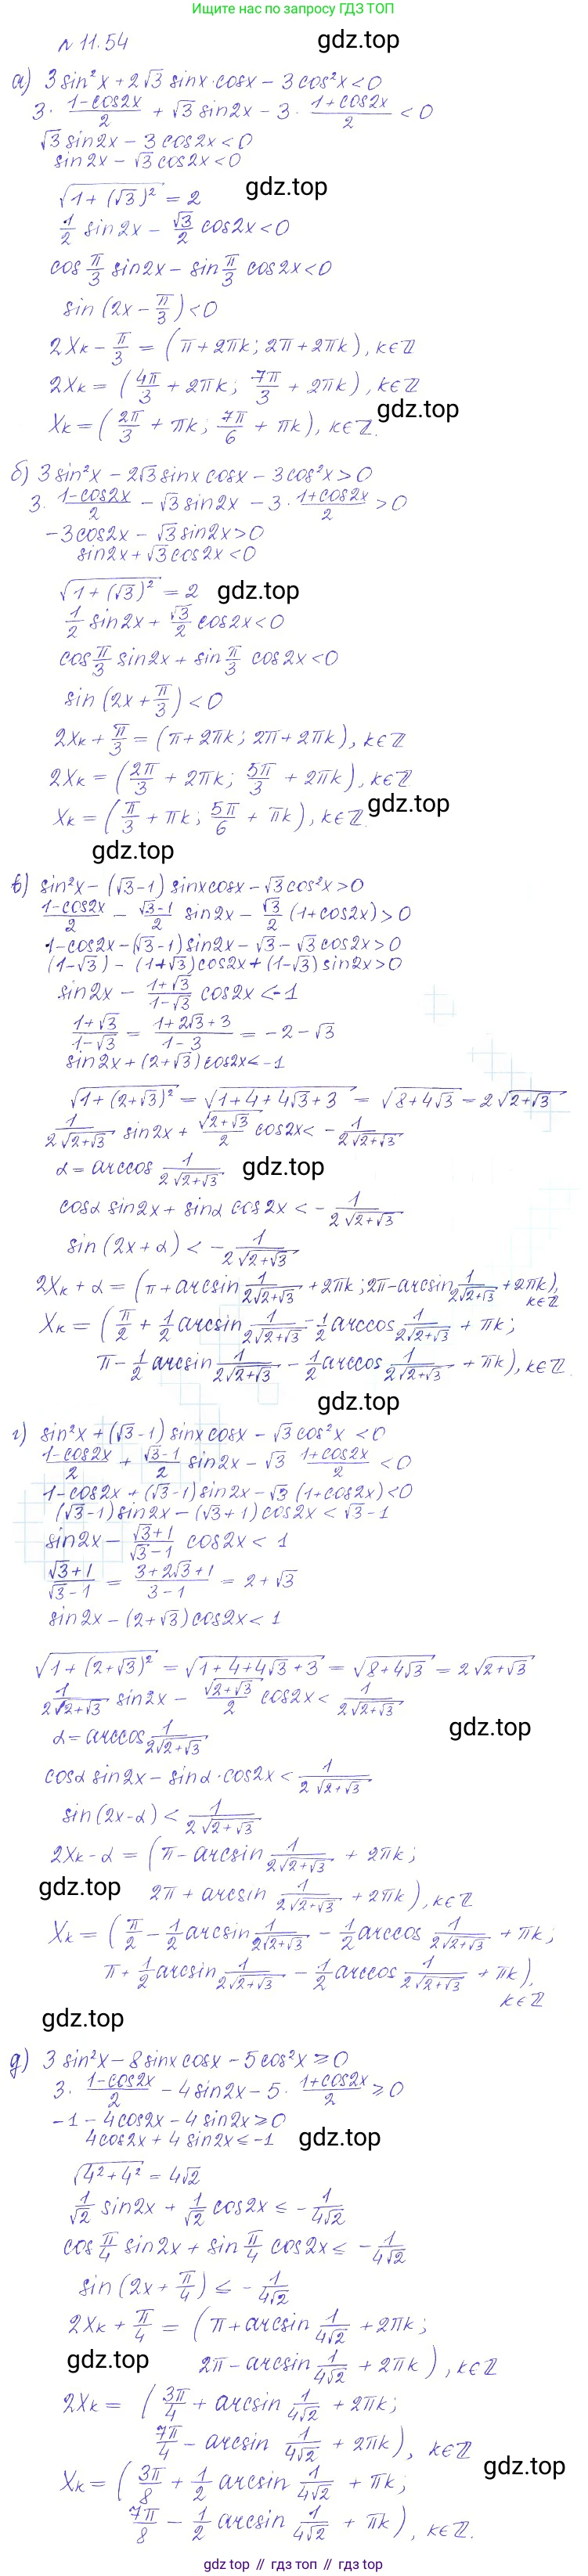 Ищите нас по запросу ГДЗ ТОП
№ 11.54
gdz.top
а) 3sin²x + 2√3 sinx·cosx − 3cos²x < 0
3 · (1−cos2x)/2 + √3 sin2x − 3 · (1+cos2x)/2 < 0
√3 sin2x − 3cos2x < 0
sin2x − √3 cos2x < 0
√(1+(√3)²) = 2
gdz.top
1/2 sin2x − √3/2 cos2x < 0
cos π/3 sin2x − sin π/3 cos2x < 0
sin(2x − π/3) < 0
2xₖ − π/3 = (π + 2πk; 2π + 2πk), k∈ℤ
2xₖ = (4π/3 + 2πk; 7π/3 + 2πk), k∈ℤ
gdz.top
xₖ = (2π/3 + πk; 7π/6 + πk), k∈ℤ.
б) 3sin²x − 2√3 sinx cosx − 3cos²x > 0
3 · (1−cos2x)/2 − √3 sin2x − 3 · (1+cos2x)/2 > 0
−3cos2x − √3 sin2x > 0
sin2x + √3 cos2x < 0
√(1+(√3)²) = 2
gdz.top
1/2 sin2x + √3/2 cos2x < 0
cos π/3 sin2x + sin π/3 cos2x < 0
sin(2x + π/3) < 0
2xₖ + π/3 = (π + 2πk; 2π + 2πk), k∈ℤ
2xₖ = (2π/3 + 2πk; 5π/3 + 2πk), k∈ℤ
xₖ = (π/3 + πk; 5π/6 + πk), k∈ℤ.
gdz.top
gdz.top
в) sin²x − (√3−1) sinxcosx − √3cos²x > 0
(1−cos2x)/2 − (√3−1)/2 sin2x − √3/2 (1+cos2x) > 0
1−cos2x−(√3−1)sin2x − √3 − √3cos2x > 0
(1−√3) − (1+√3)cos2x + (1−√3)sin2x > 0
sin2x − (1+√3)/(1−√3) cos2x < −1
(1+√3)/(1−√3) = (1+2√3+3)/(1−3) = −2−√3
sin2x + (2+√3)cos2x < −1
√(1+(2+√3)²) = √(1+4+4√3+3) = √(8+4√3) = 2√(2+√3)
1/(2√(2+√3)) sin2x + √(2+√3)/2 cos2x < −1/(2√(2+√3))
α = arccos 1/(2√(2+√3))
gdz.top
cosα sin2x + sinα cos2x < −1/(2√(2+√3))
sin(2x+α) < −1/(2√(2+√3))
2xₖ + α = (π + arcsin 1/(2√(2+√3)) + 2πk; 2π − arcsin 1/(2√(2+√3)) + 2πk), k∈ℤ
xₖ = (π/2 + 1/2 arcsin 1/(2√(2+√3)) − 1/2 arccos 1/(2√(2+√3)) + πk;
π − 1/2 arcsin 1/(2√(2+√3)) − 1/2 arccos 1/(2√(2+√3)) + πk), k∈ℤ.
gdz.top
г) sin²x + (√3−1) sinxcosx − √3cos²x < 0
(1−cos2x)/2 + (√3−1)/2 sin2x − √3 (1+cos2x)/2 < 0
1−cos2x + (√3−1)sin2x − √3(1+cos2x) < 0
(√3−1)sin2x − (√3+1)cos2x < √3−1
sin2x − (√3+1)/(√3−1) cos2x < 1
(√3+1)/(√3−1) = (3+2√3+1)/(3−1) = 2+√3
sin2x − (2+√3)cos2x < 1
√(1+(2+√3)²) = √(1+4+4√3+3) = √(8+4√3) = 2√(2+√3)
1/(2√(2+√3)) sin2x − √(2+√3)/2 cos2x < 1/(2√(2+√3))
α = arccos 1/(2√(2+√3))
gdz.top
cosα sin2x − sinα·cos2x < 1/(2√(2+√3))
sin(2x−α) < 1/(2√(2+√3))
2xₖ − α = (π − arcsin 1/(2√(2+√3)) + 2πk;
gdz.top
2π + arcsin 1/(2√(2+√3)) + 2πk), k∈ℤ
xₖ = (π/2 − 1/2 arcsin 1/(2√(2+√3)) − 1/2 arccos 1/(2√(2+√3)) + πk;
π + 1/2 arcsin 1/(2√(2+√3)) − 1/2 arccos 1/(2√(2+√3)) + πk), k∈ℤ
gdz.top
д) 3sin²x − 8sinxcosx − 5cos²x ≥ 0
3 · (1−cos2x)/2 − 4sin2x − 5 · (1+cos2x)/2 ≥ 0
−1 − 4cos2x − 4sin2x ≥ 0
4cos2x + 4sin2x ≤ −1
gdz.top
√(4²+4²) = 4√2
1/√2 sin2x + 1/√2 cos2x ≤ −1/(4√2)
cos π/4 sin2x + sin π/4 cos2x ≤ −1/(4√2)
sin(2x + π/4) ≤ −1/(4√2)
2xₖ + π/4 = (π + arcsin 1/(4√2) + 2πk;
gdz.top
2π − arcsin 1/(4√2) + 2πk), k∈ℤ
2xₖ = (3π/4 + arcsin 1/(4√2) + 2πk;
7π/4 − arcsin 1/(4√2) + 2πk), k∈ℤ
gdz.top
xₖ = (3π/8 + 1/2 arcsin 1/(4√2) + πk;
7π/8 − 1/2 arcsin 1/(4√2) + πk), k∈ℤ.
gdz.top // гдз.топ // gdz.top